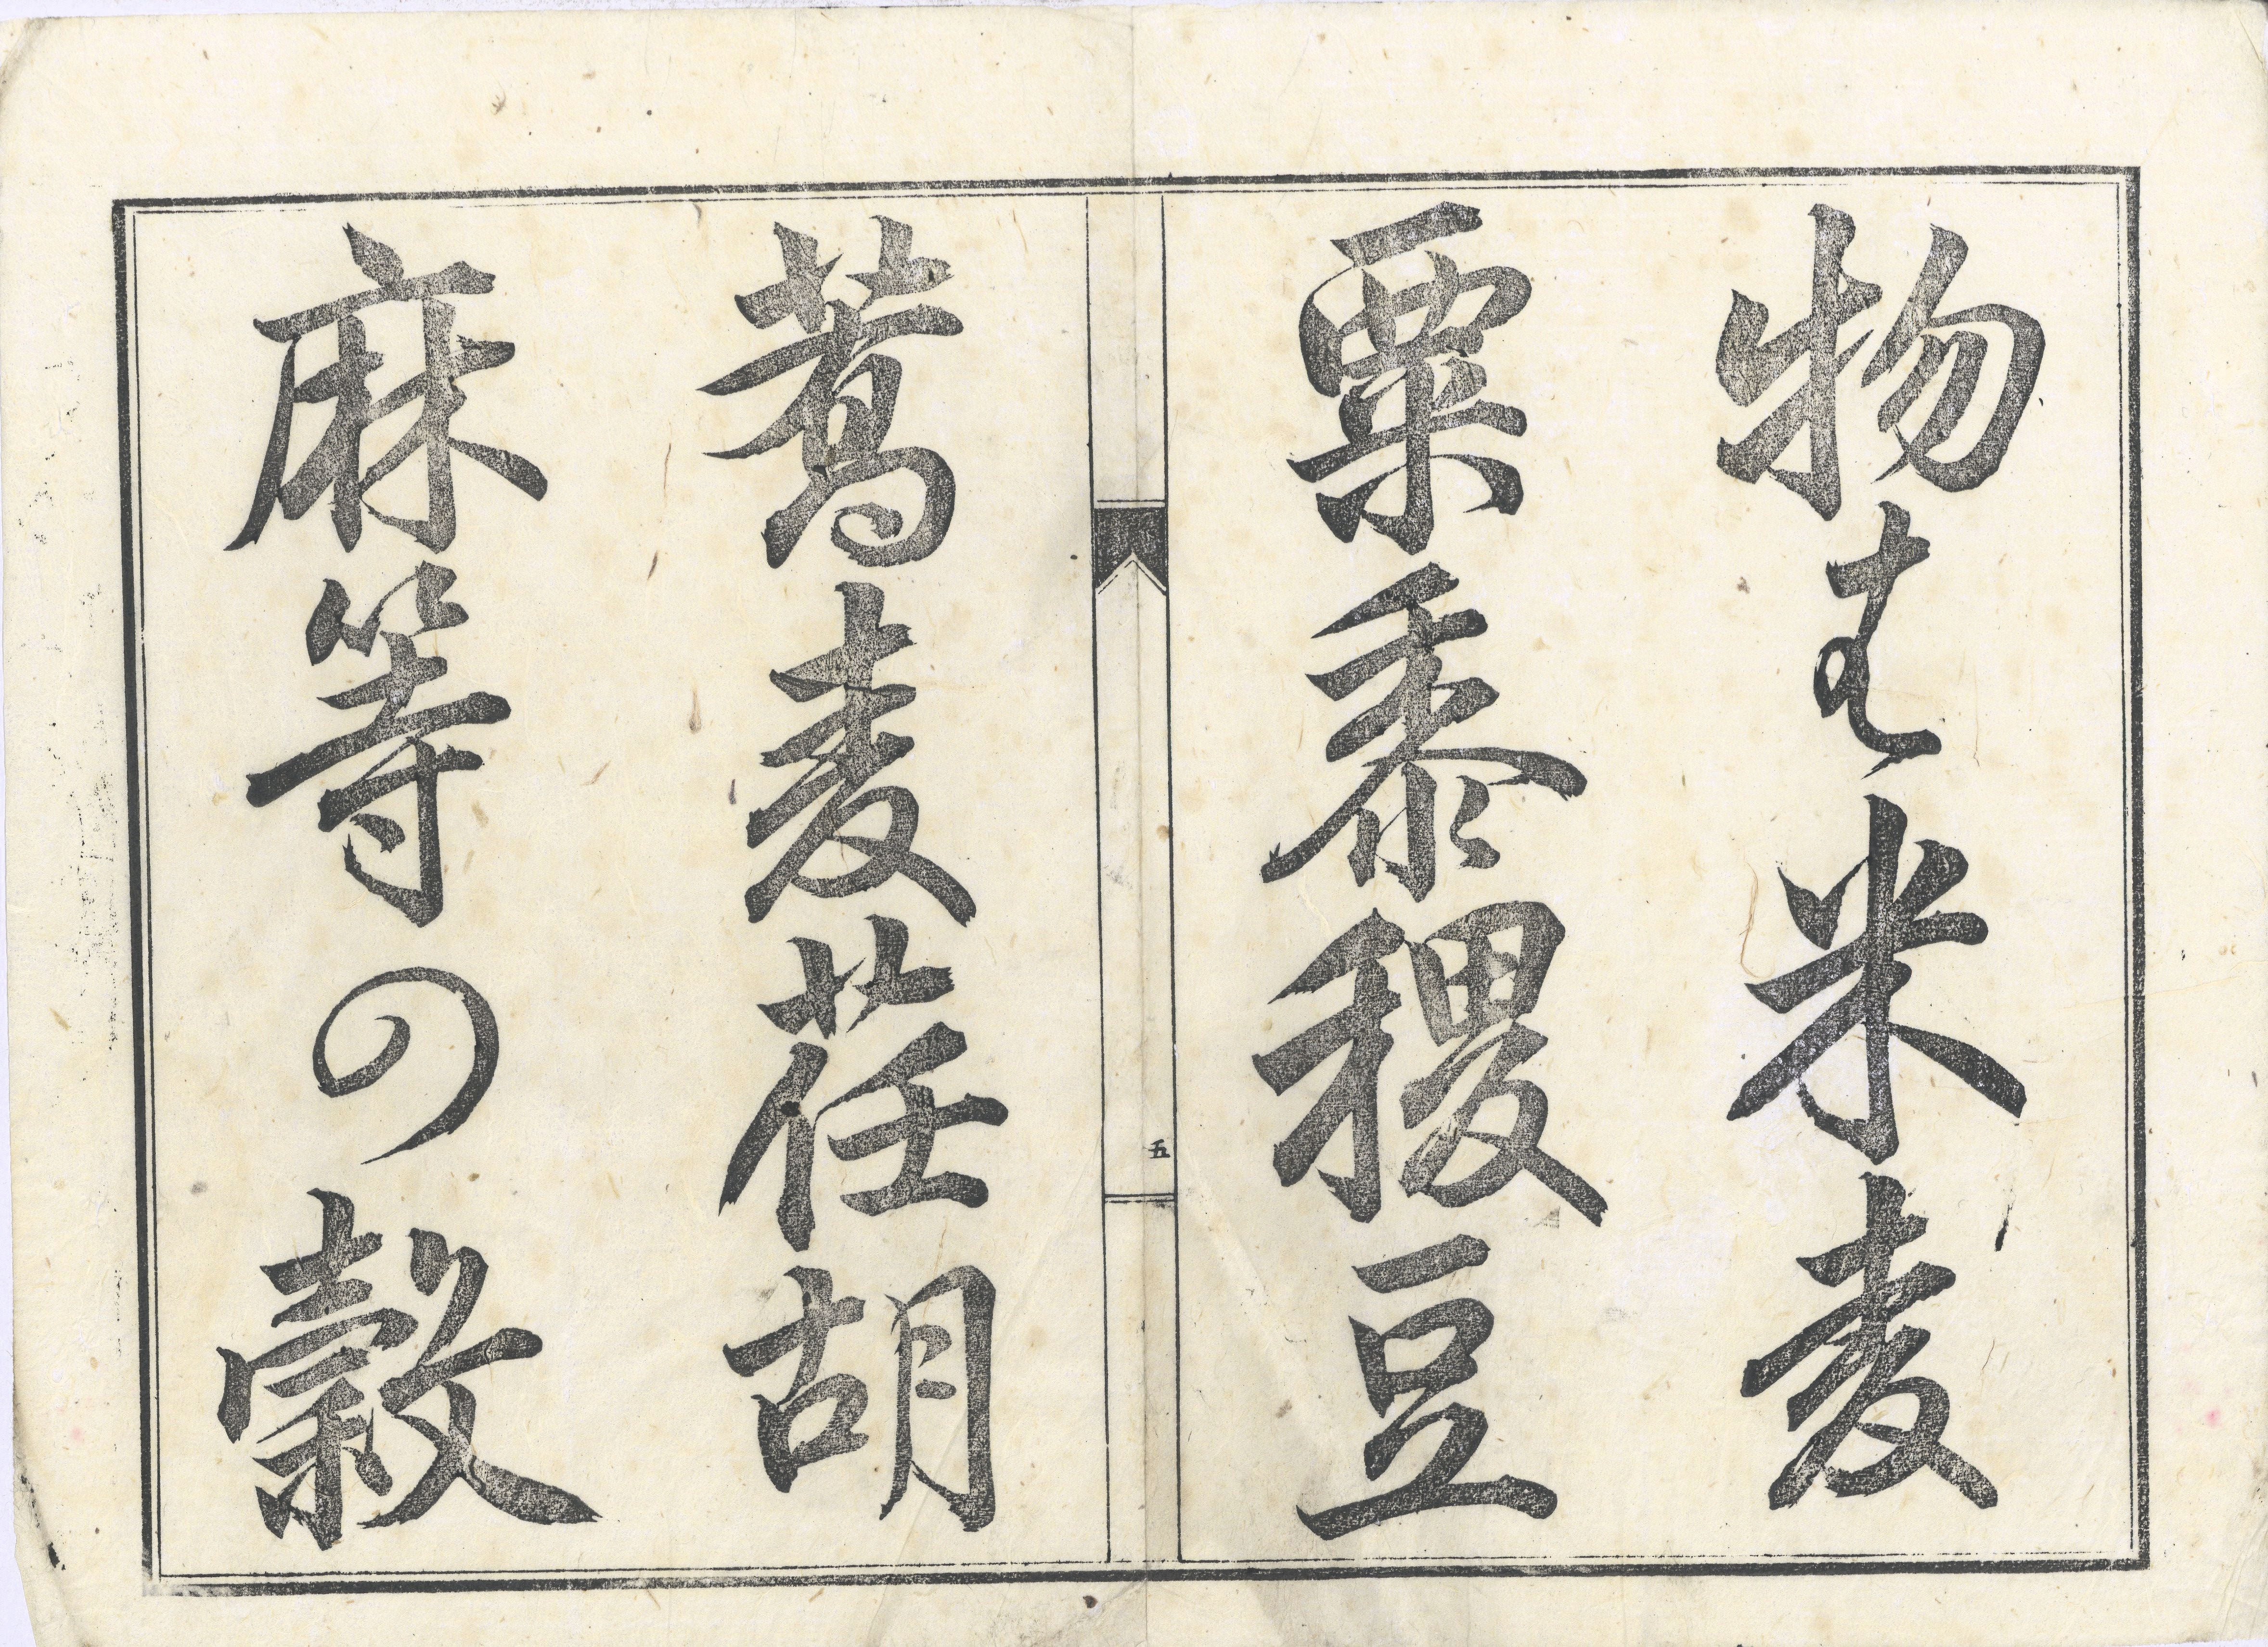 物は米麦
粟黍稷豆
五
蕎麦荏胡
麻等の穀